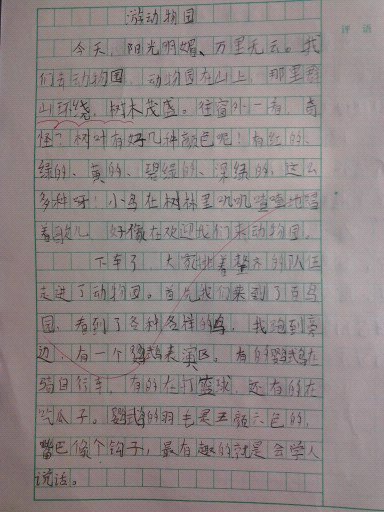 游动物园
今天,阳光明媚、万里无云。我
们去动物园,动物园在山上,那里群
山环绕,树木茂盛。往窗外一看,奇
怪?树叶有好几种颜色呢!有红的、
绿的、黄的、碧绿的、深绿的,这么
多种呀!小鸟在树林里叽叽喳喳地唱
着歌儿,好像在欢迎我们来动物园。
下车了,大家排着整齐的队伍
走进了动物园。首先我们来到了百鸟
园,看到了各种各样的鸟,我跑到旁
边,有一个鹦鹉表演区。有的鹦鹉在
骑自行车,有的在打篮球,还有的在
吃瓜子。鹦鹉的羽毛是五颜六色的,
嘴巴像个钩子,最有趣的就是会学人
说话。
评语